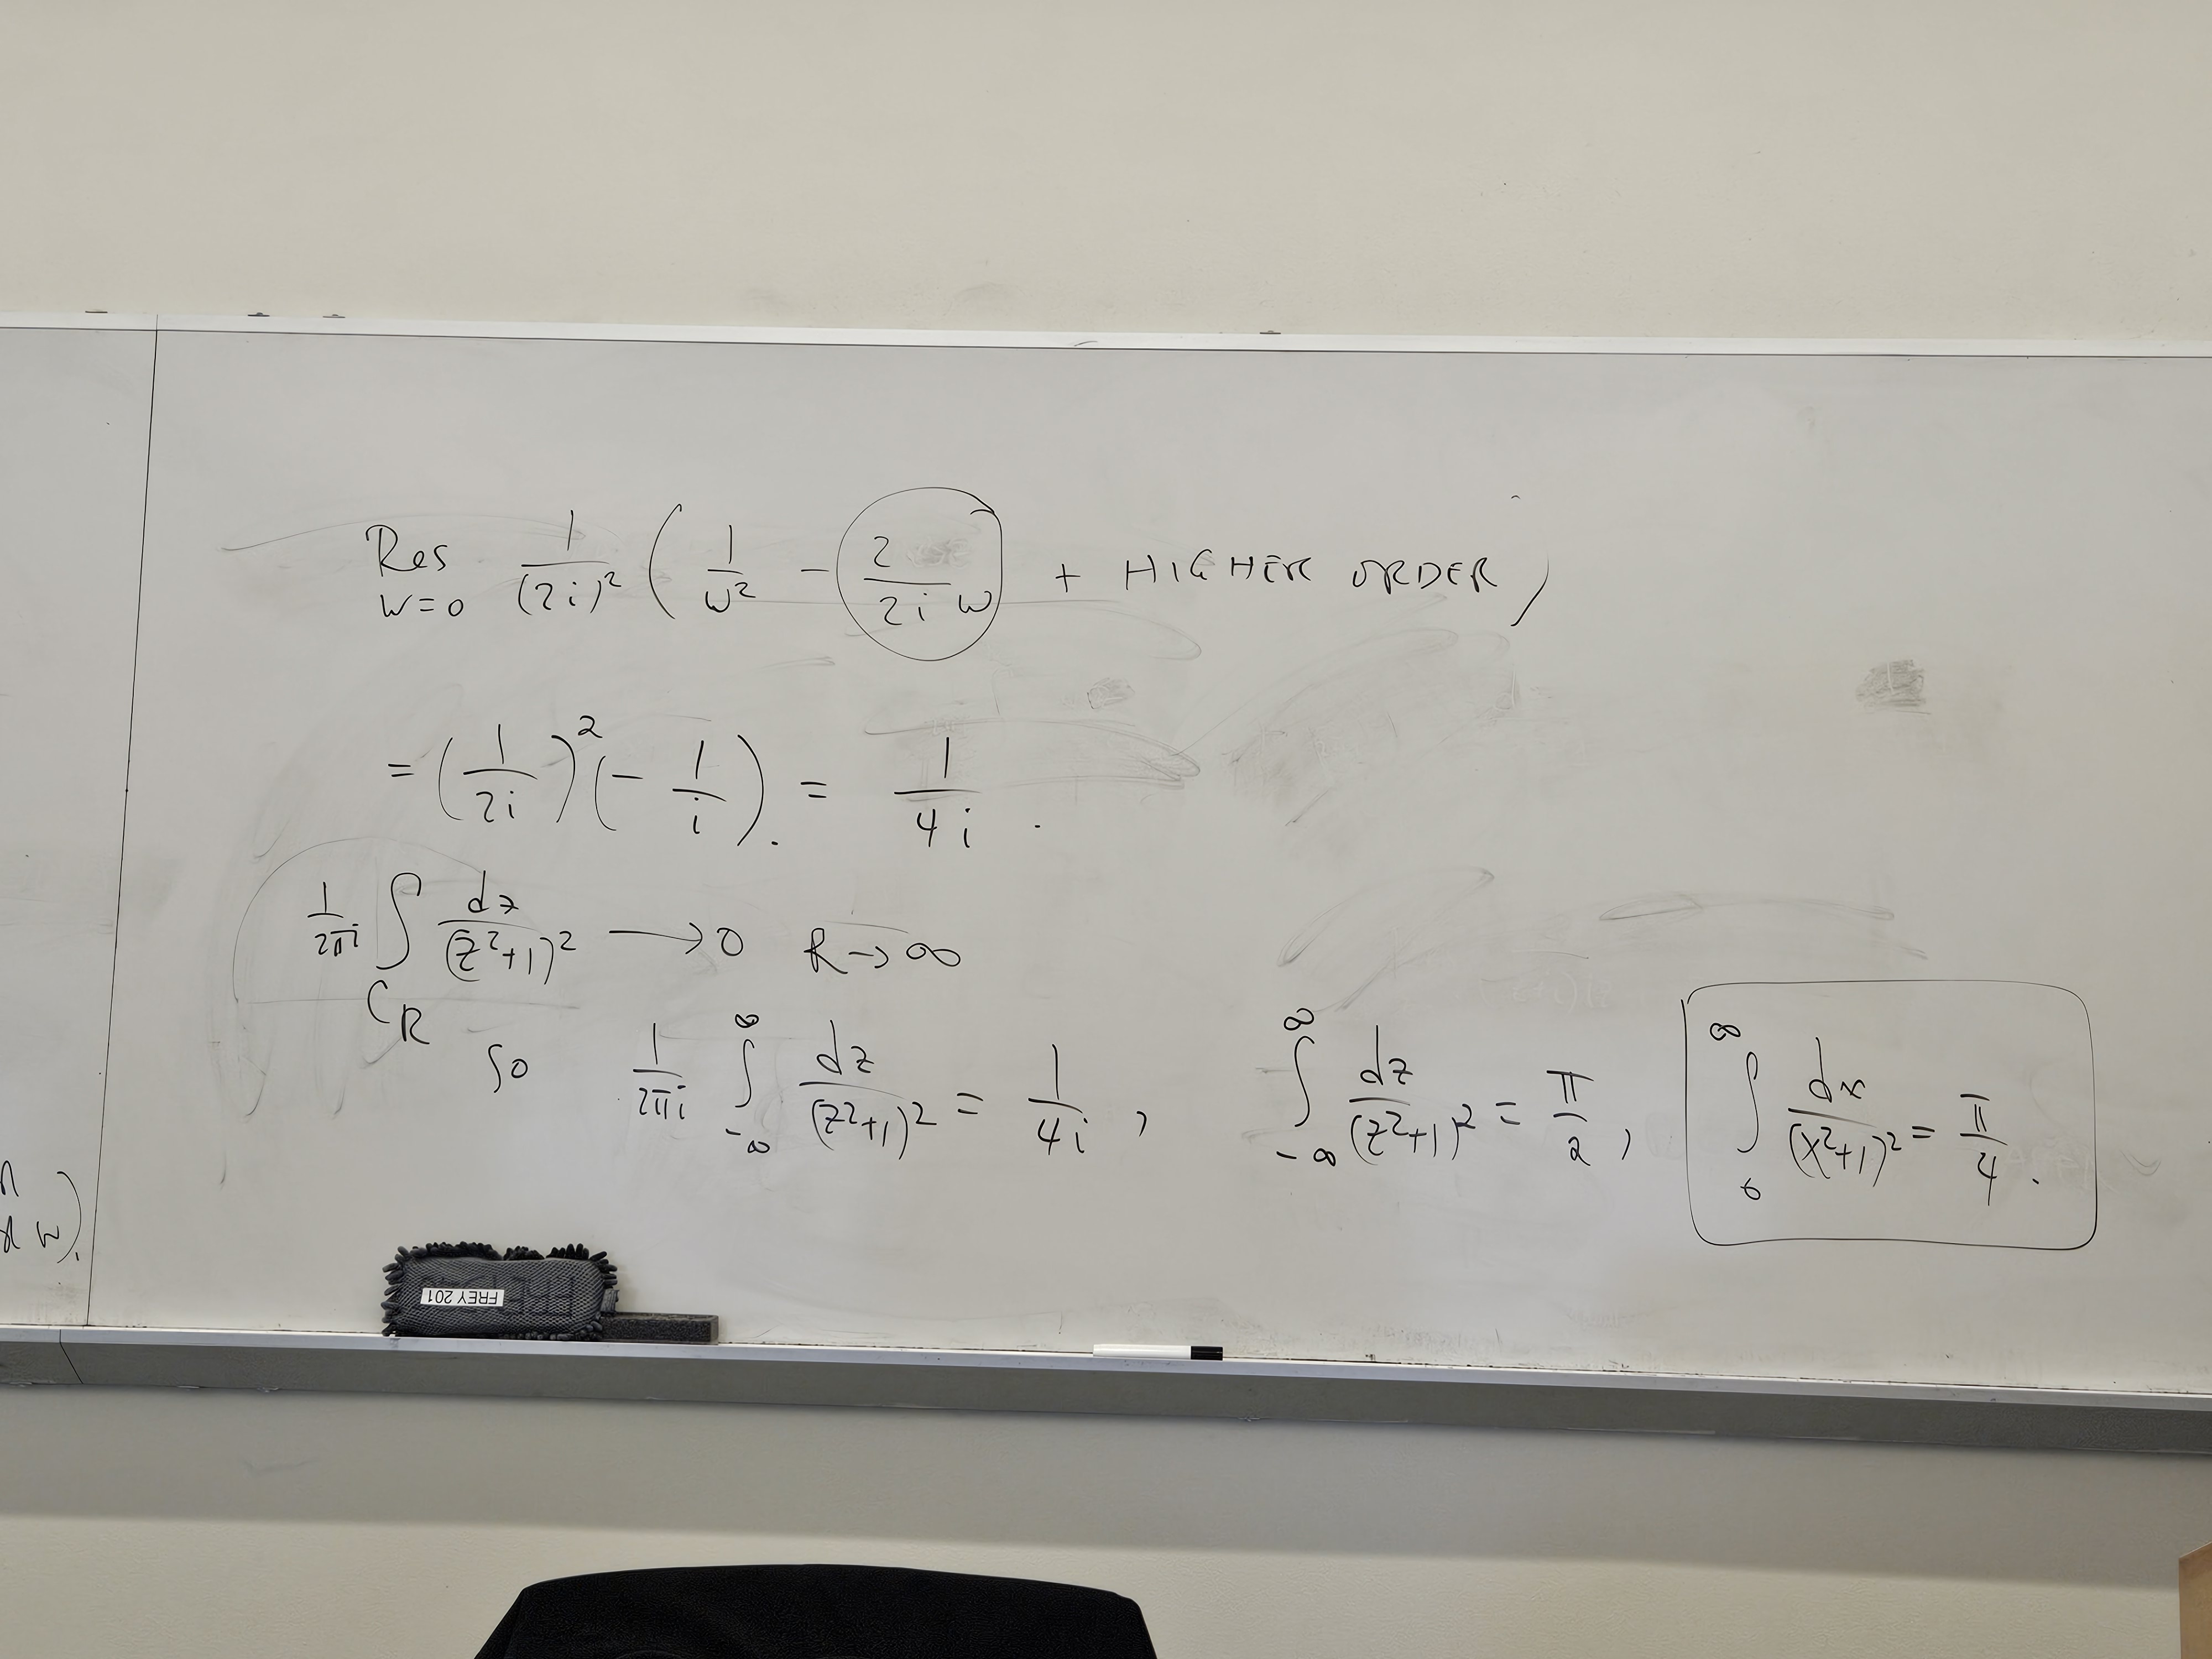 Res w=0 1/(2i)² ( 1/w² - 2/(2i w) + HIGHER ORDER )
= (1/2i)² (- 1/i). = 1/4i .
1/2πi ∫_{C_R} dz/(z²+1)² → 0 R → ∞
So 1/2πi ∫_{-∞}^{∞} dz/(z²+1)² = 1/4i , ∫_{-∞}^{∞} dz/(z²+1)² = π/2 , ∫_{0}^{∞} dx/(x²+1)² = π/4 .
w).
FREY 201